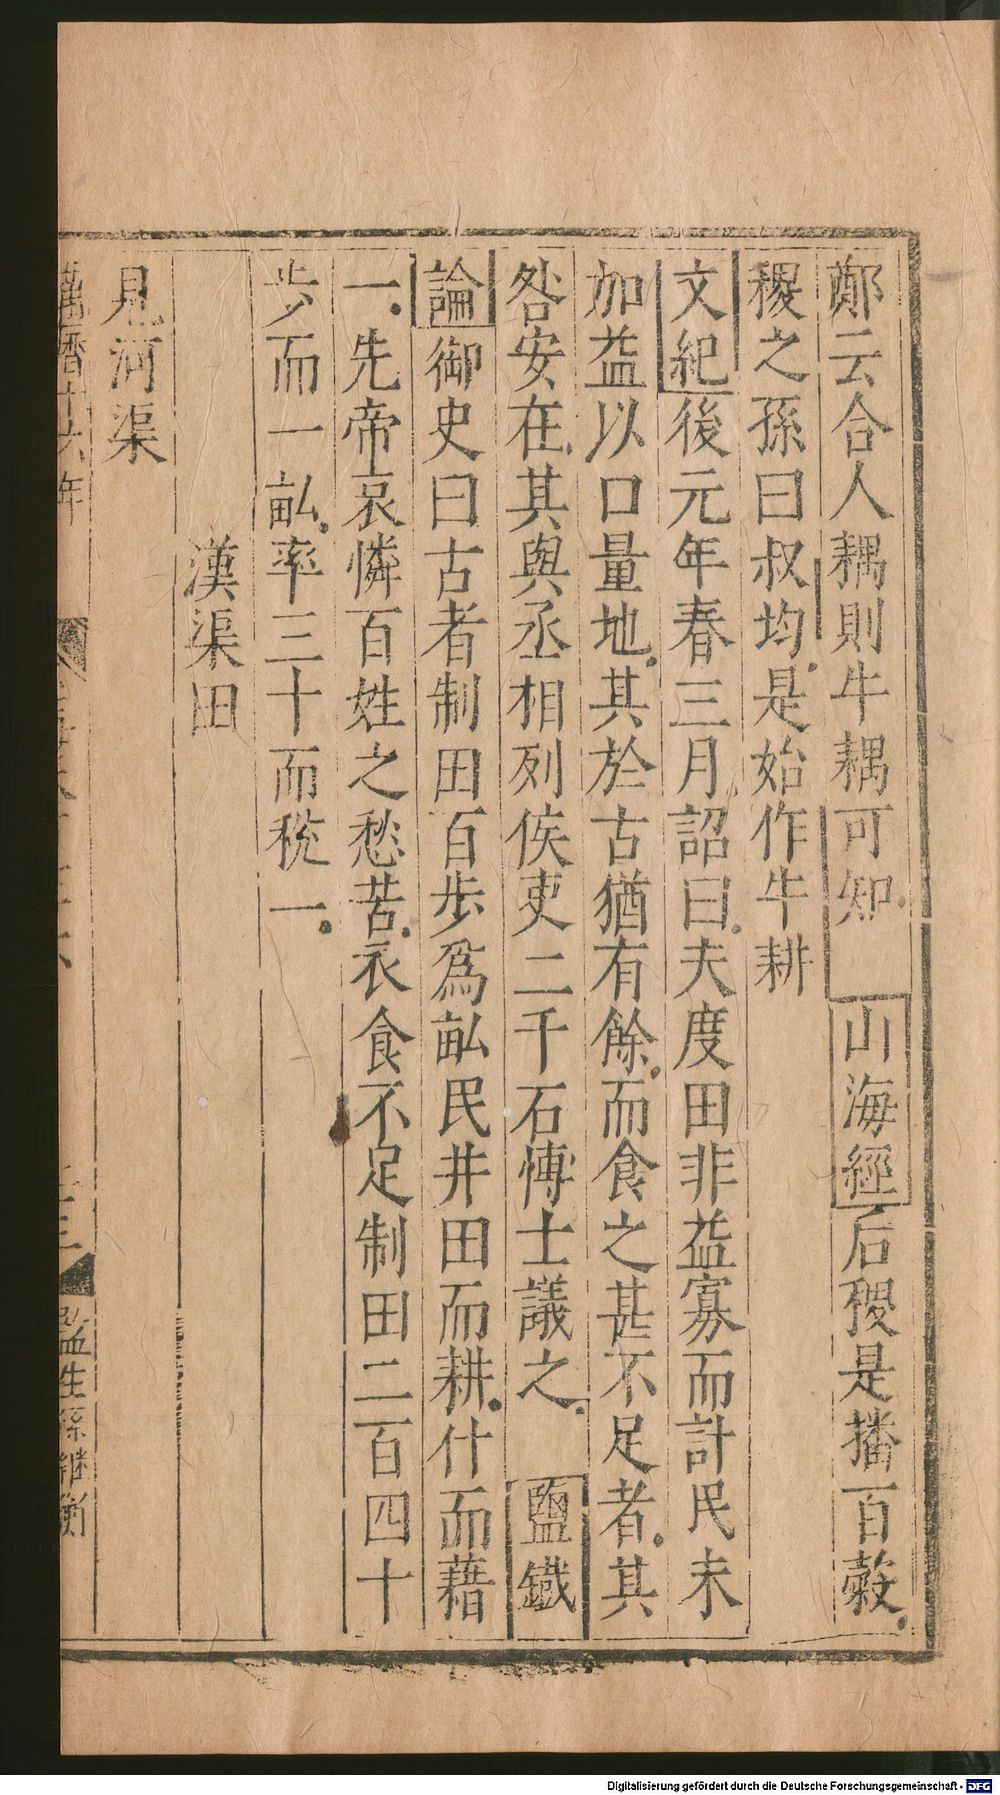 鄭云合人耦則牛耦可知　山海經后稷是播百榖
稷之孫曰叔均是始作牛耕
文紀後元年春三月詔曰夫度田非益寡而計民未
加益以口量地其於古猶有餘而食之甚不足者其
咎安在其與丞相列侯吏二千石博士議之　鹽鐵
論御史曰古者制田百歩爲畝民井田而耕什而藉
一先帝哀憐百姓之愁苦衣食不足制田二百四十
步而一畝率三十而税一
漢渠田
見河渠
萬曆十六年
監生孫繼衡
Digitalisierung gefördert durch die Deutsche Forschungsgemeinschaft - DFG